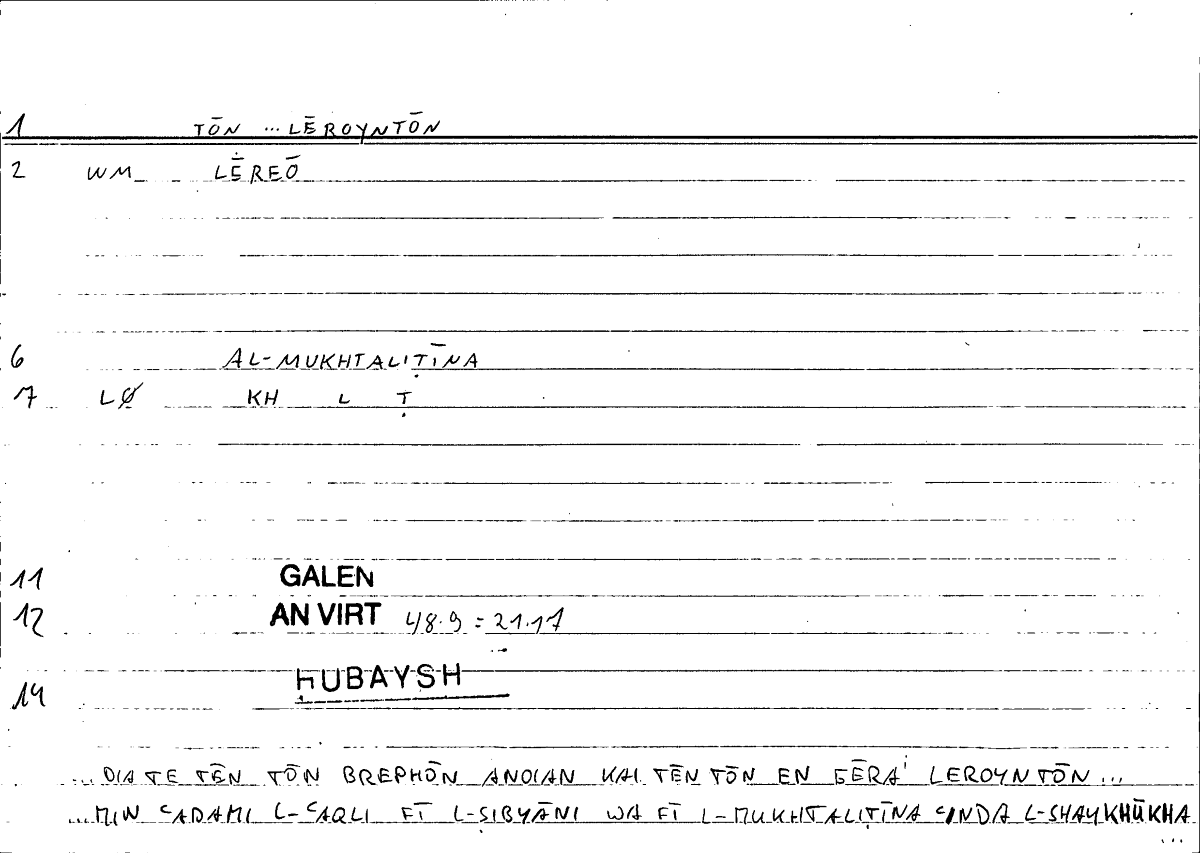 1 TŌN ... LĒROYNTŌN
2 WM LĒREŌ
6 AL-MUKHTALIṬĪNA
7 LØ KH L Ṭ
11 GALEN
12 AN VIRT 48.9 = 21.17
14 ḤUBAYSH
... DIA TE TĒN TŌN BREPHŌN ANOIAN KAI TĒN TŌN EN GĒRA' LEROYNTŌN ...
... MIN ʿADAMI L-ʿAQLI FĪ L-ṢIBYĀNI WA FĪ L-MUKHTALIṬĪNA ʿINDA L-SHAYKHŪKHA
...